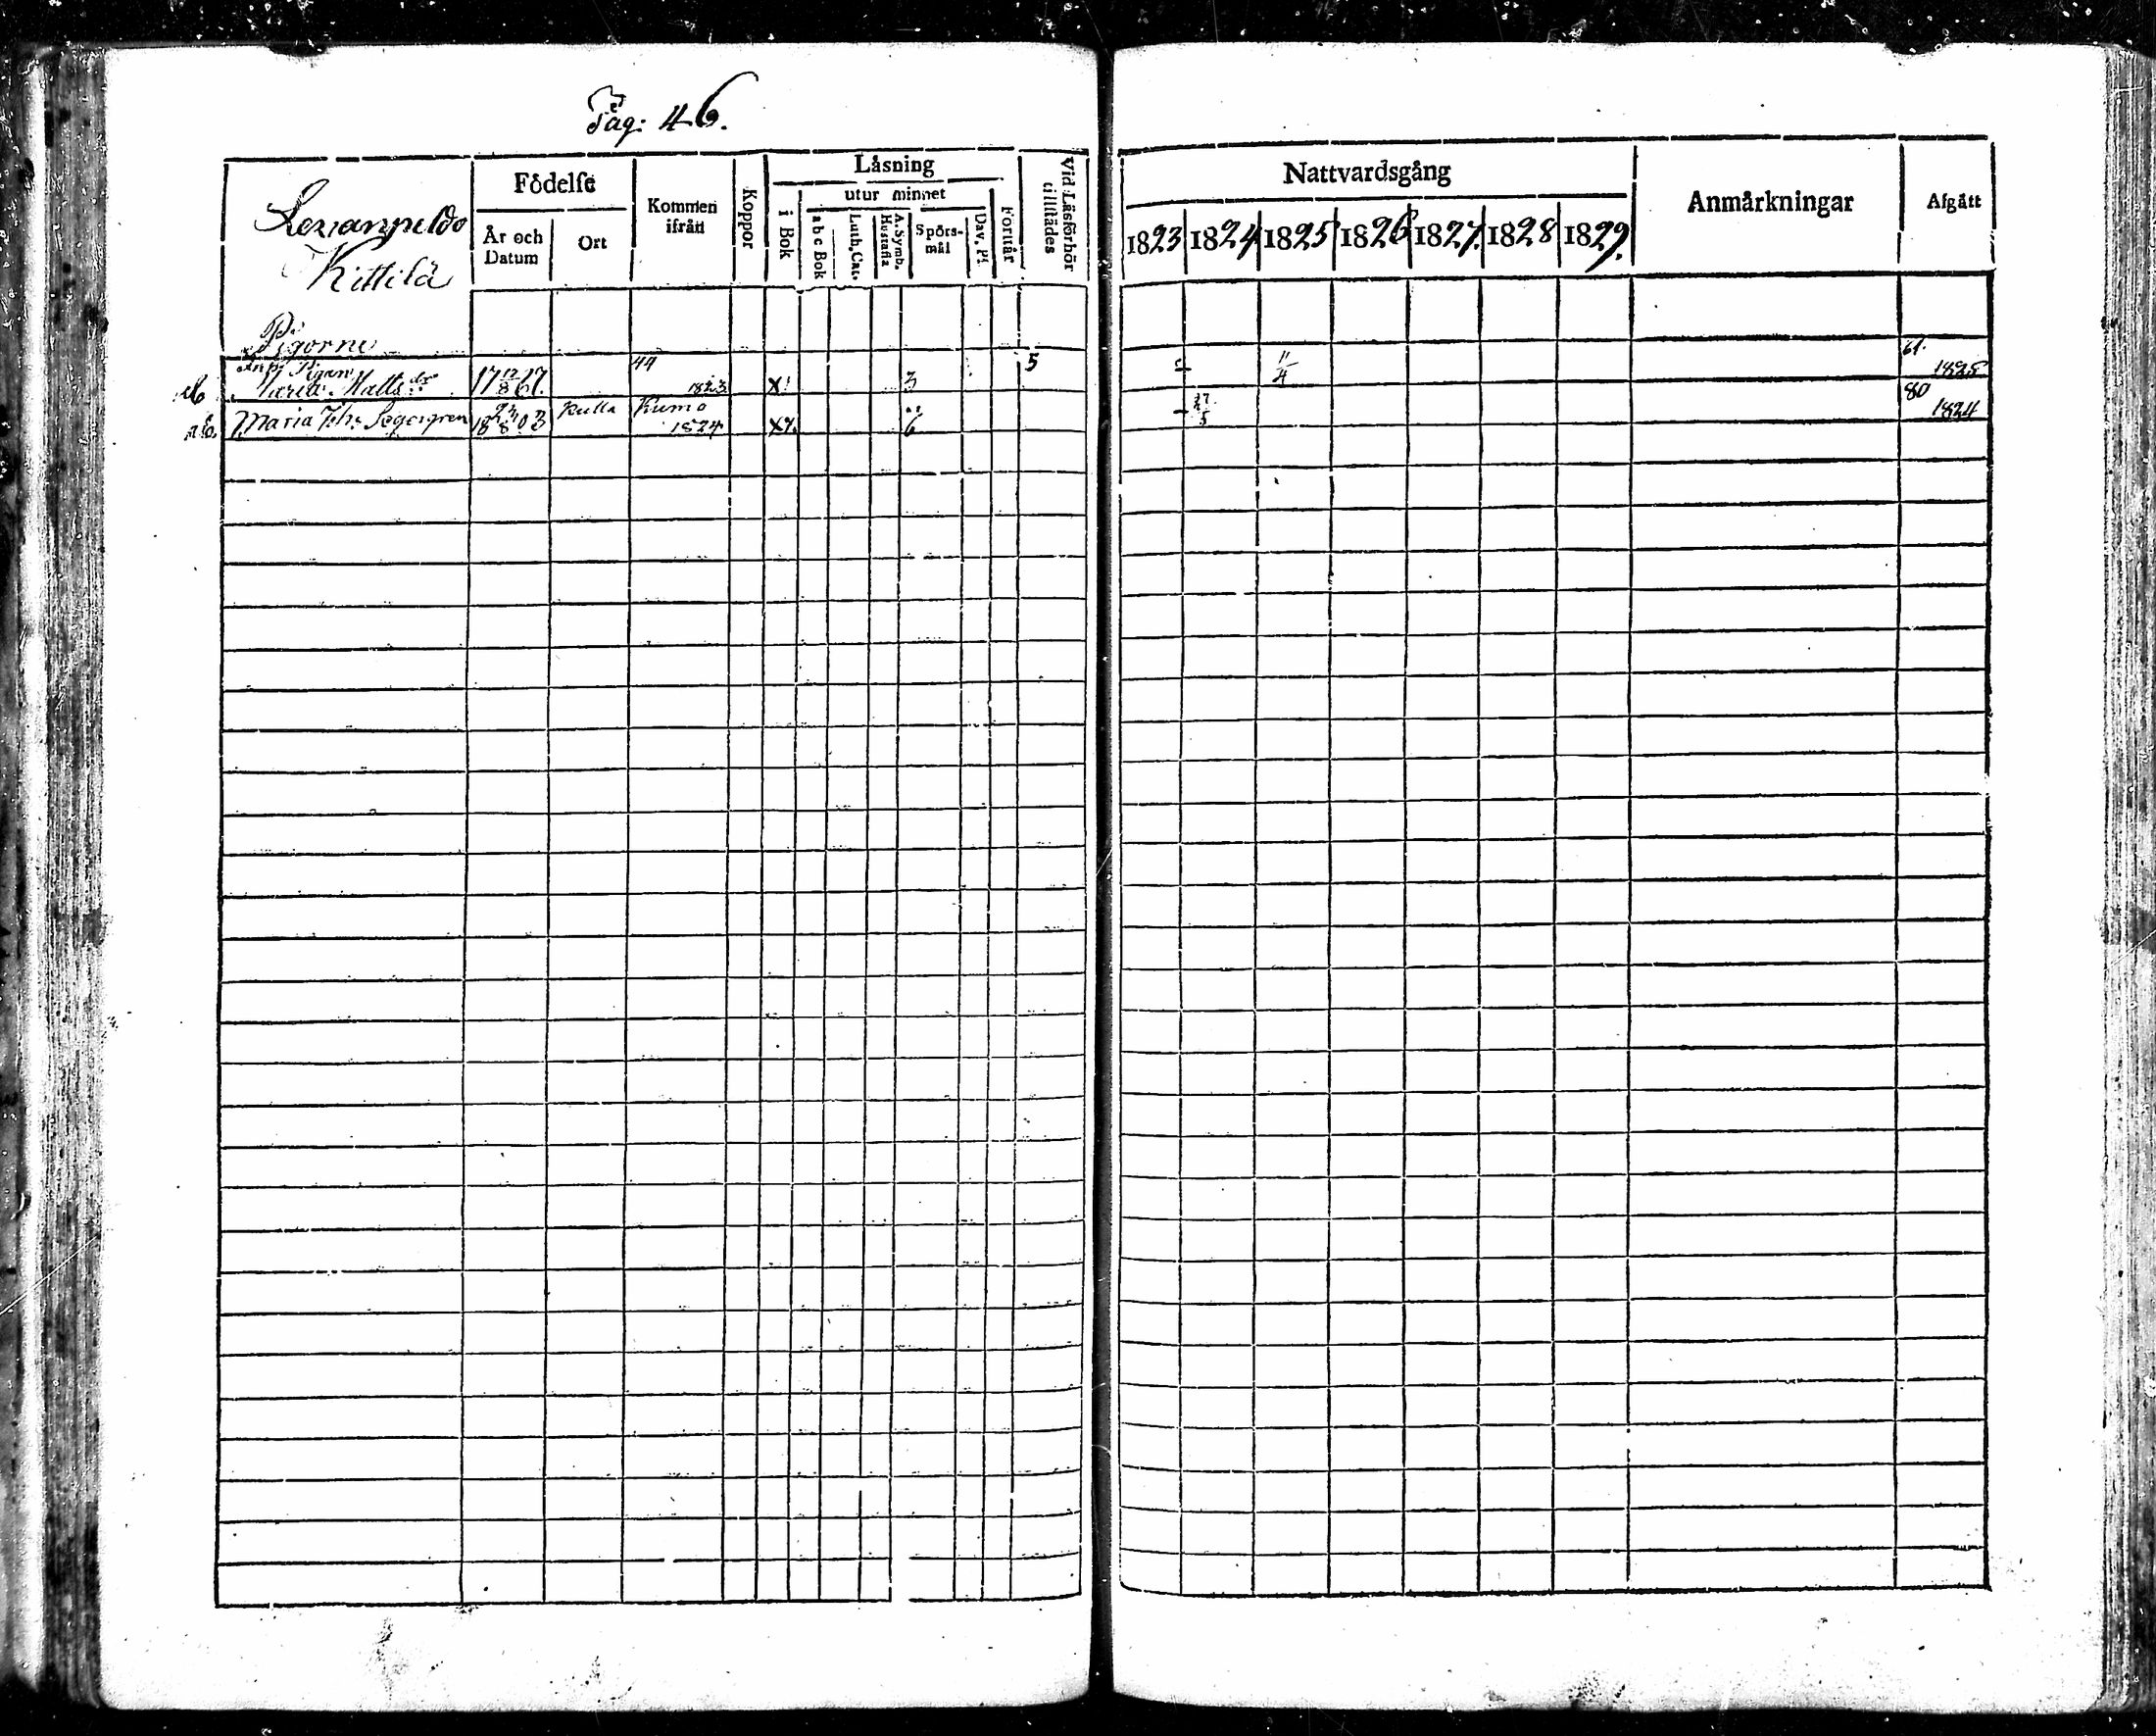 Pag: 46.
Födelse
Kommen ifrån
Koppor
Läsning
utur minnet
Vid Läsförhör tillstädes
Kittilä
År och Datum
Ort
i Bok
abc Bok
Luth. Cat.
A. Symb. Hustafla
Spörsmål
Dav. Ps.
Förstår
Nattvardsgång
Anmärkningar
Afgått
1823 1824 1825 1826 1827. 1828 1829.
Pigorne
Pigan 44 5 11/4 61.
Maria Matts dr 17 12/8 67. 1823 x! 3 1825
Maria Joh: Segergren 18 03 Kulla Kumo 1824 xx. 6 27/5 80 1824